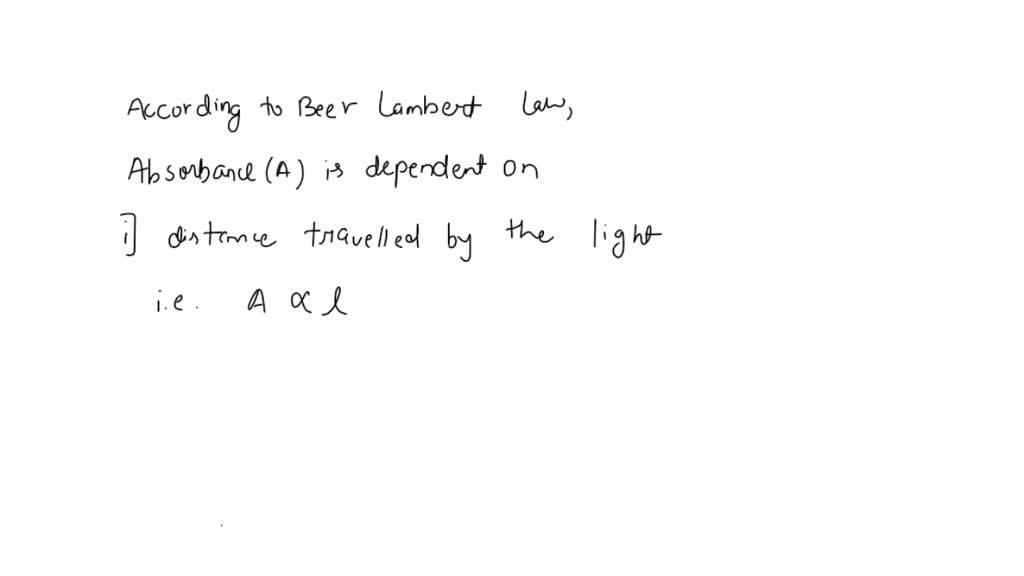 According to Beer Lambert law,
Absorbance (A) is dependent on
i] distance travelled by the light
i.e. A ∝ l